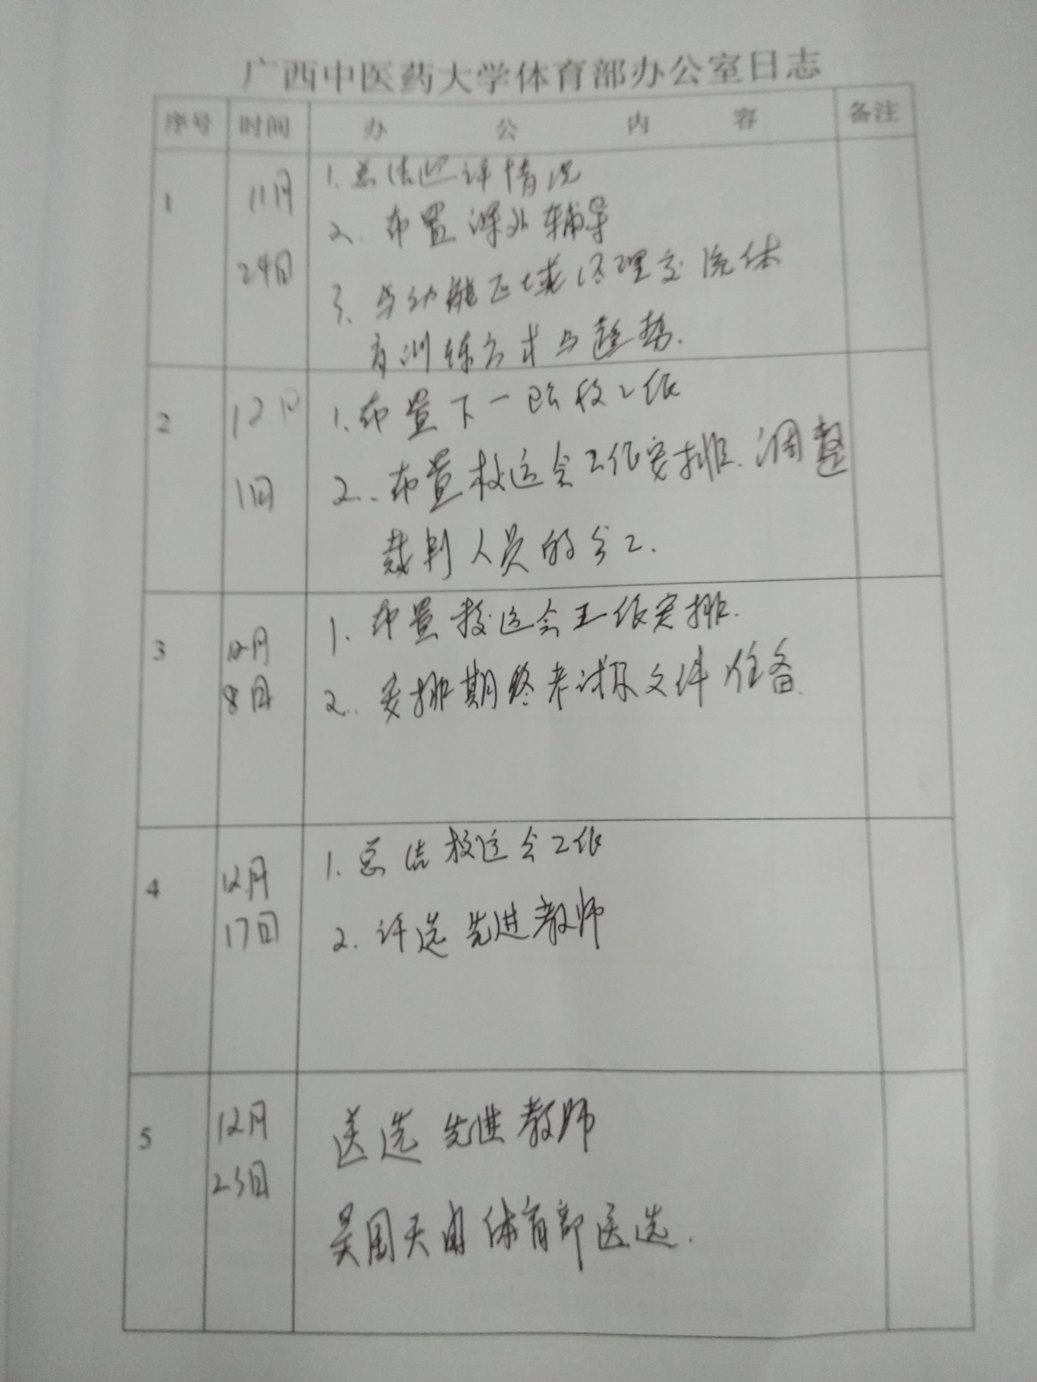 广西中医药大学体育部办公室日志
序号 时间 办公内容 备注
1 11月24日 1.总结迎评情况
2.布置课外辅导
3.与功能区域管理交流体
育训练方式与趋势.
2 12月1日 1.布置下一阶段工作
2.布置校运会工作安排.调整
裁判人员的分工.
3 12月8日 1.布置校运会工作安排.
2.安排期终考试及文件准备
4 12月17日 1.总结校运会工作
2.评选先进教师
5 12月23日 送选先进教师
吴国天由体育部送选.